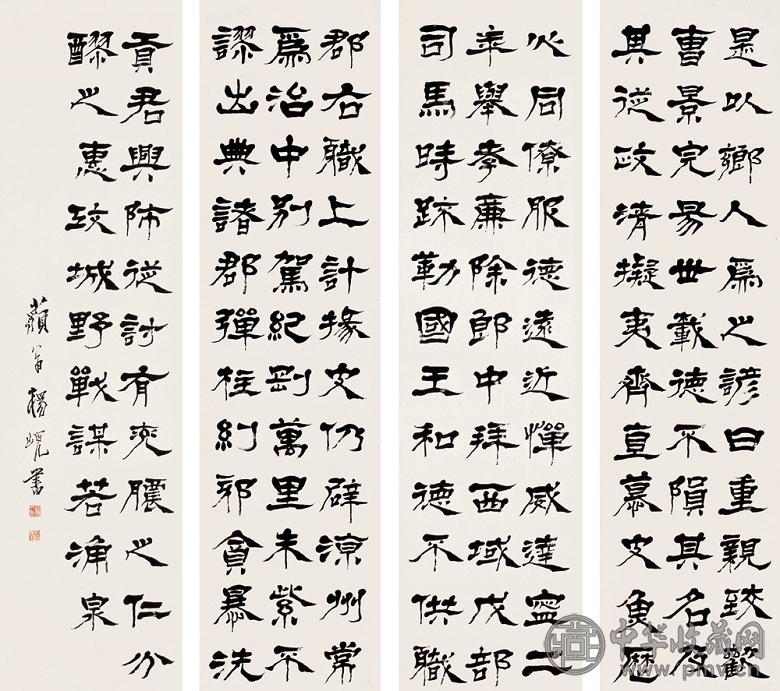 是以鄉人爲之諺曰重親致歡
曹景完易世載德不隕其名及
其從政清擬夷齊直慕史魚歷
心同僚服德遠近憚威建寧二
年舉孝廉除郎中拜西域戊部
司馬時疏勒國王和德不供職
郡右職上計掾史仍辟涼州常
爲治中別駕紀剛萬里朱紫不
謬出典諸郡彈枉糾邪貪暴洗
貢君興師征討有兗膿之仁分
醪之惠攻城野戰謀若涌泉
藐翁楊峴書
中华收藏网
www.pmv.cn